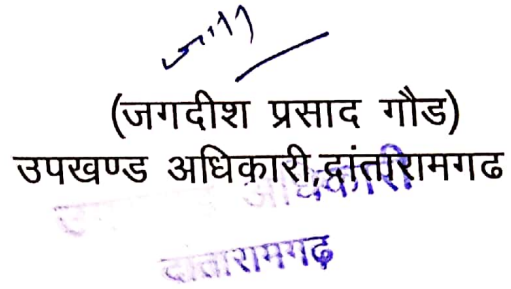 (जगदीश प्रसाद गौड)
उपखण्ड अधिकारी,दांतारामगढ
अधिकारी
दांतारामगढ़